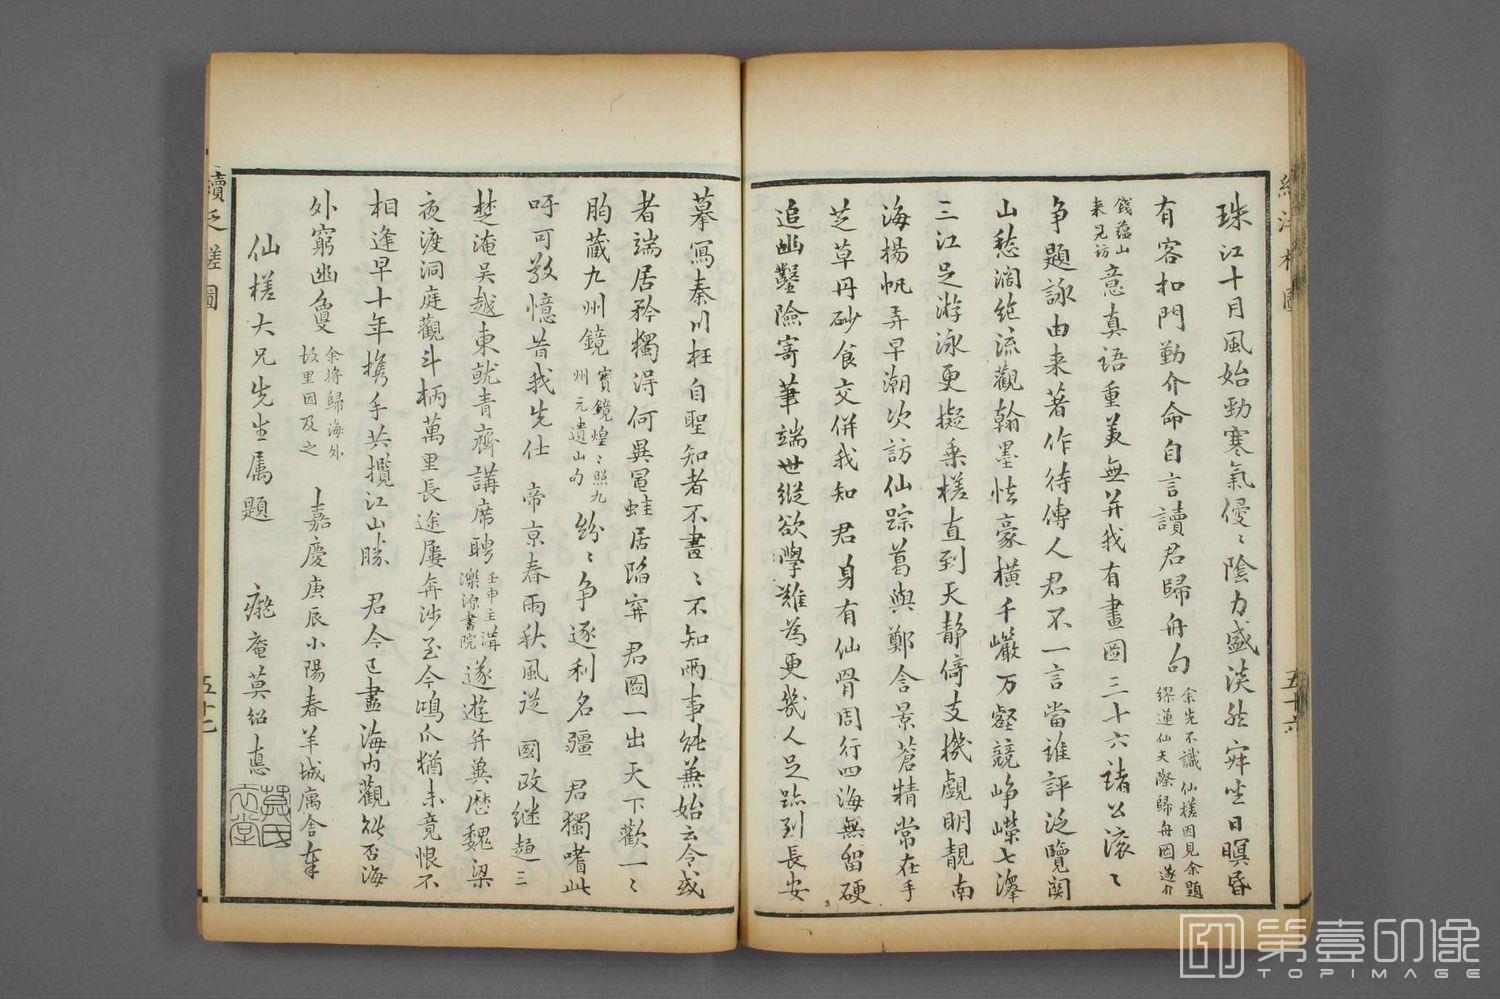 珠江十月風始勁寒氣優〻陰力盛淡然寐坐日瞑昏
有客扣門勤介命自言讀君歸舟句
余先不識仙槎因見余題
繆蓮仙夫際歸舟圖遂介
錢蘊山
来見訪
意真語重美無并我有畫圖三十六諸公滾〻
争題詠由来著作待傳人君不一言當誰評泛覽関
山愁濶絶流觀翰墨怯豪橫千巖万壑競峥嶸七澤
三江足游泳更擬乗槎直到天静倚支機覷明靚南
海揚帆弄早潮次訪仙踪葛與鄭含景蒼精常在手
芝草丹砂食交併我知君身有仙骨周行四海無留硬
追幽鑿險寄筆端世縱欲學難為更幾人足跡到長安
摹寫秦川枉自聖知者不畫〻不知兩事能兼始云令或
者端居矜獨得何異黽蛙居陷穽君圖一出天下歡一〻
胸蔵九州鏡
寶鏡煌〻照九
州元遺山句
紛〻争逐利名疆君獨嗜此
吁可敬憶昔我先仕帝京春雨秋風送國政継趨三
楚淹吳越東就青齊講席聘
壬申主講
濼源書院
遂遊并冀歴魏梁
夜渡洞庭觀斗柄萬里長途屢奔涉至今鴻爪猶未竟恨不
相逢早十年携手共攬江山勝君今已盡海内觀能否海
外窮幽夐
余將歸海外
故里因及之
嘉慶庚辰小陽春羊城寓舍奉
仙槎大兄先生属題
癡庵莫紹悳
續泛槎圖
五十六
五十七
第壹印像
TOPIMAGE